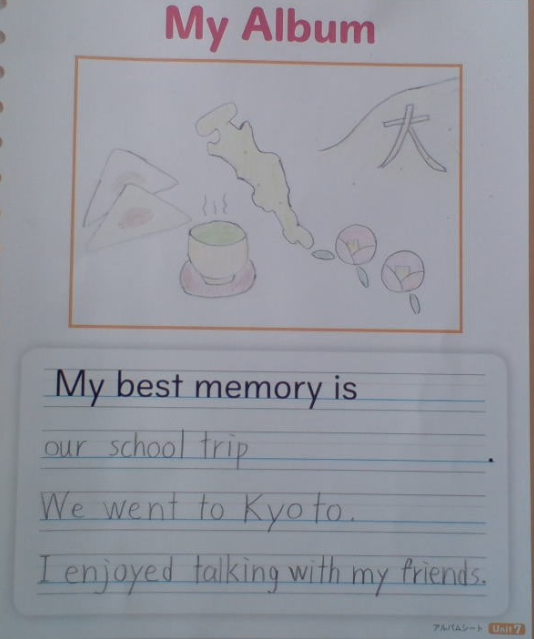 My Album
大
My best memory is
our school trip .
We went to Kyoto.
I enjoyed talking with my friends.
アルバムシート Unit 7